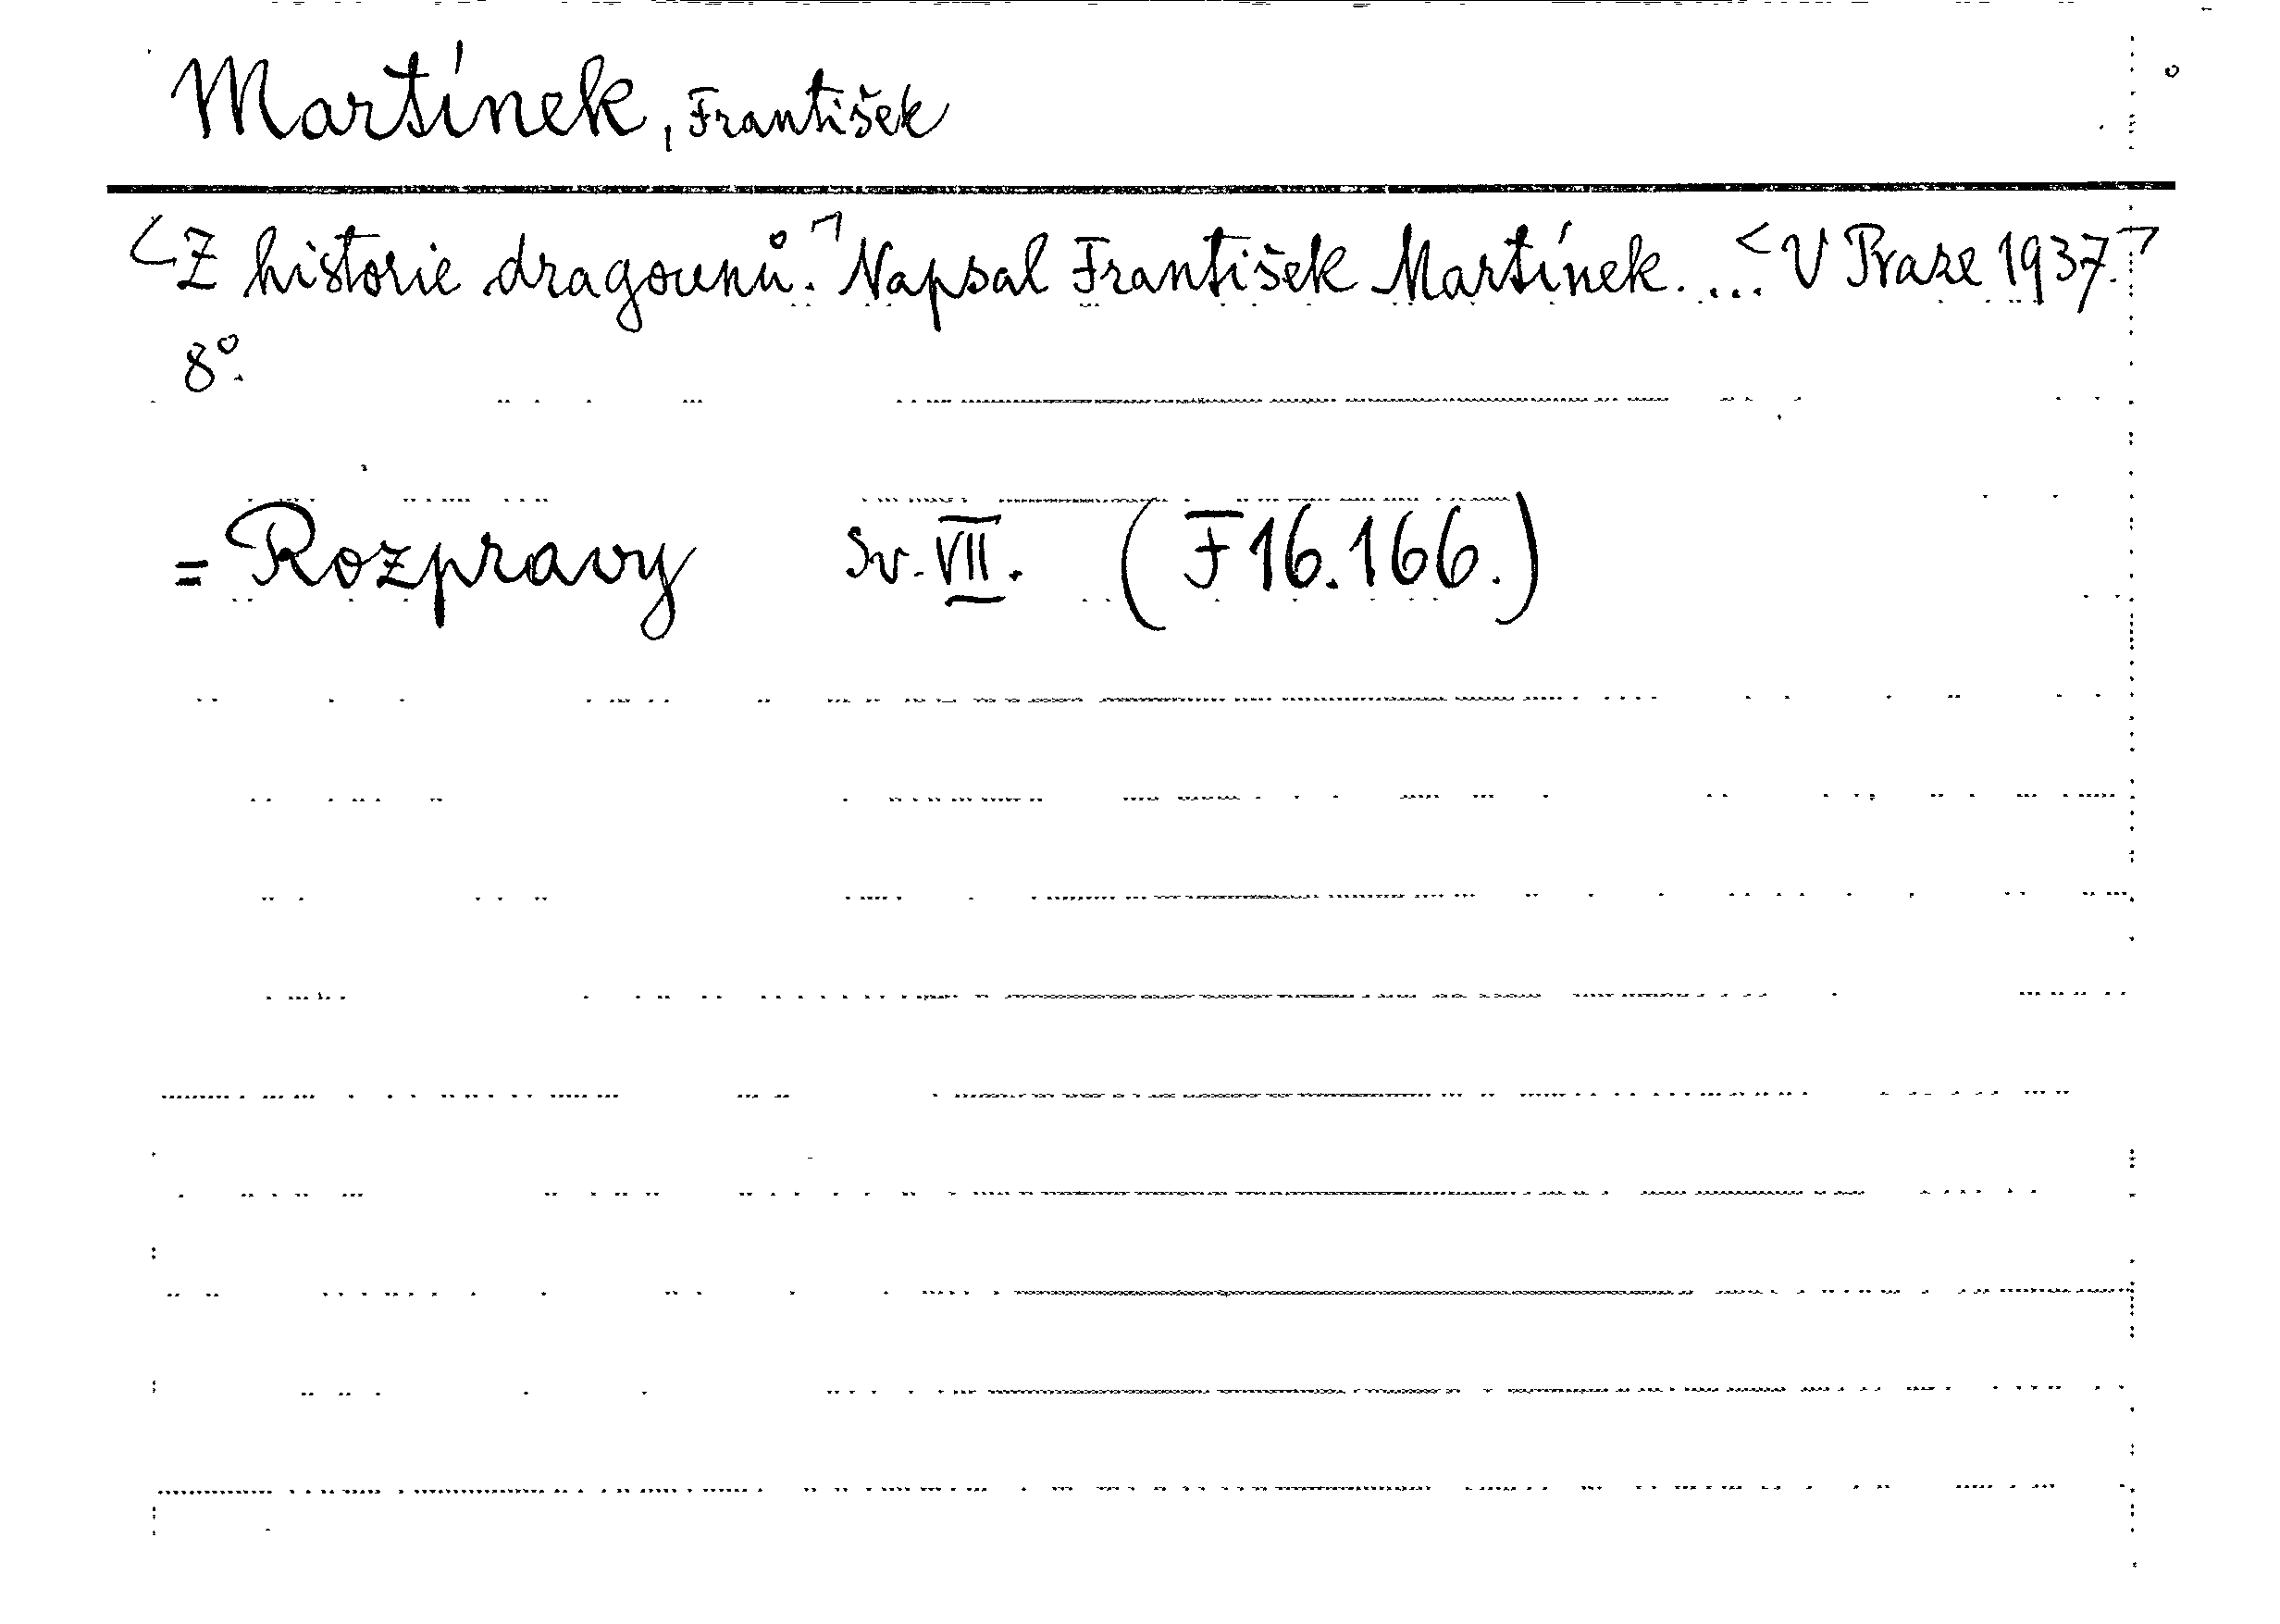 Martínek, František
<Z historie dragounů.> Napsal František Martínek. ... <V Praze 1937.>
8°.
= Rozpravy sv. VII. (F 16.166.)